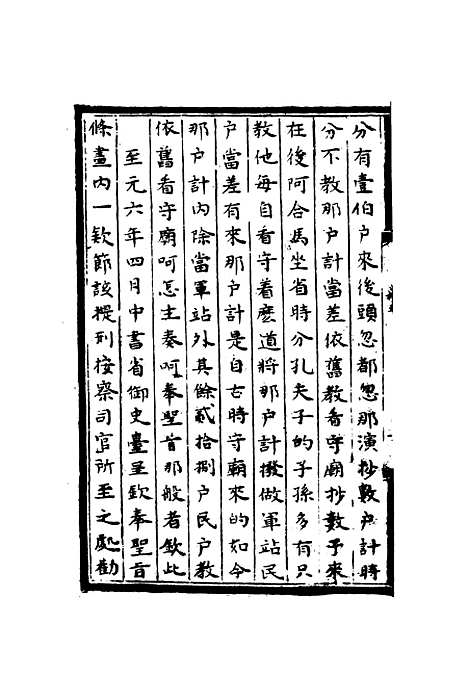 分有壹伯户來後頭忽都忽那演抄數户計時
分不教那户計當差依舊教看守廟抄數了來
在後阿合馬坐省時分孔夫子的子孫多有只
教他每自看守着麽道將那户計撥做軍站民
户當差有來那户計是自古時守廟來的如今
那户計内除當軍站外其餘貳拾捌户民户教
依舊看守廟呵怎主奏呵奉聖旨那般者欽此
至元六年四月中書省御史臺呈欽奉聖旨
條畫内一欵節該提刑按察司官所至之處勸